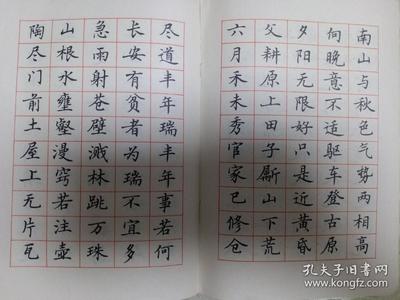 南山与秋色气势两相高
向晚意不适驱车登古原
夕阳无限好只是近黄昏
父耕原上田子斸山下荒
六月禾未秀官家已修仓
尽道丰年瑞丰年事若何
长安有贫者为瑞不宜多
急雨射苍壁溅林跳万珠
山根水壅壑漫窍若注壶
陶尽门前土屋上无片瓦
孔夫子旧书网
kongfz.com